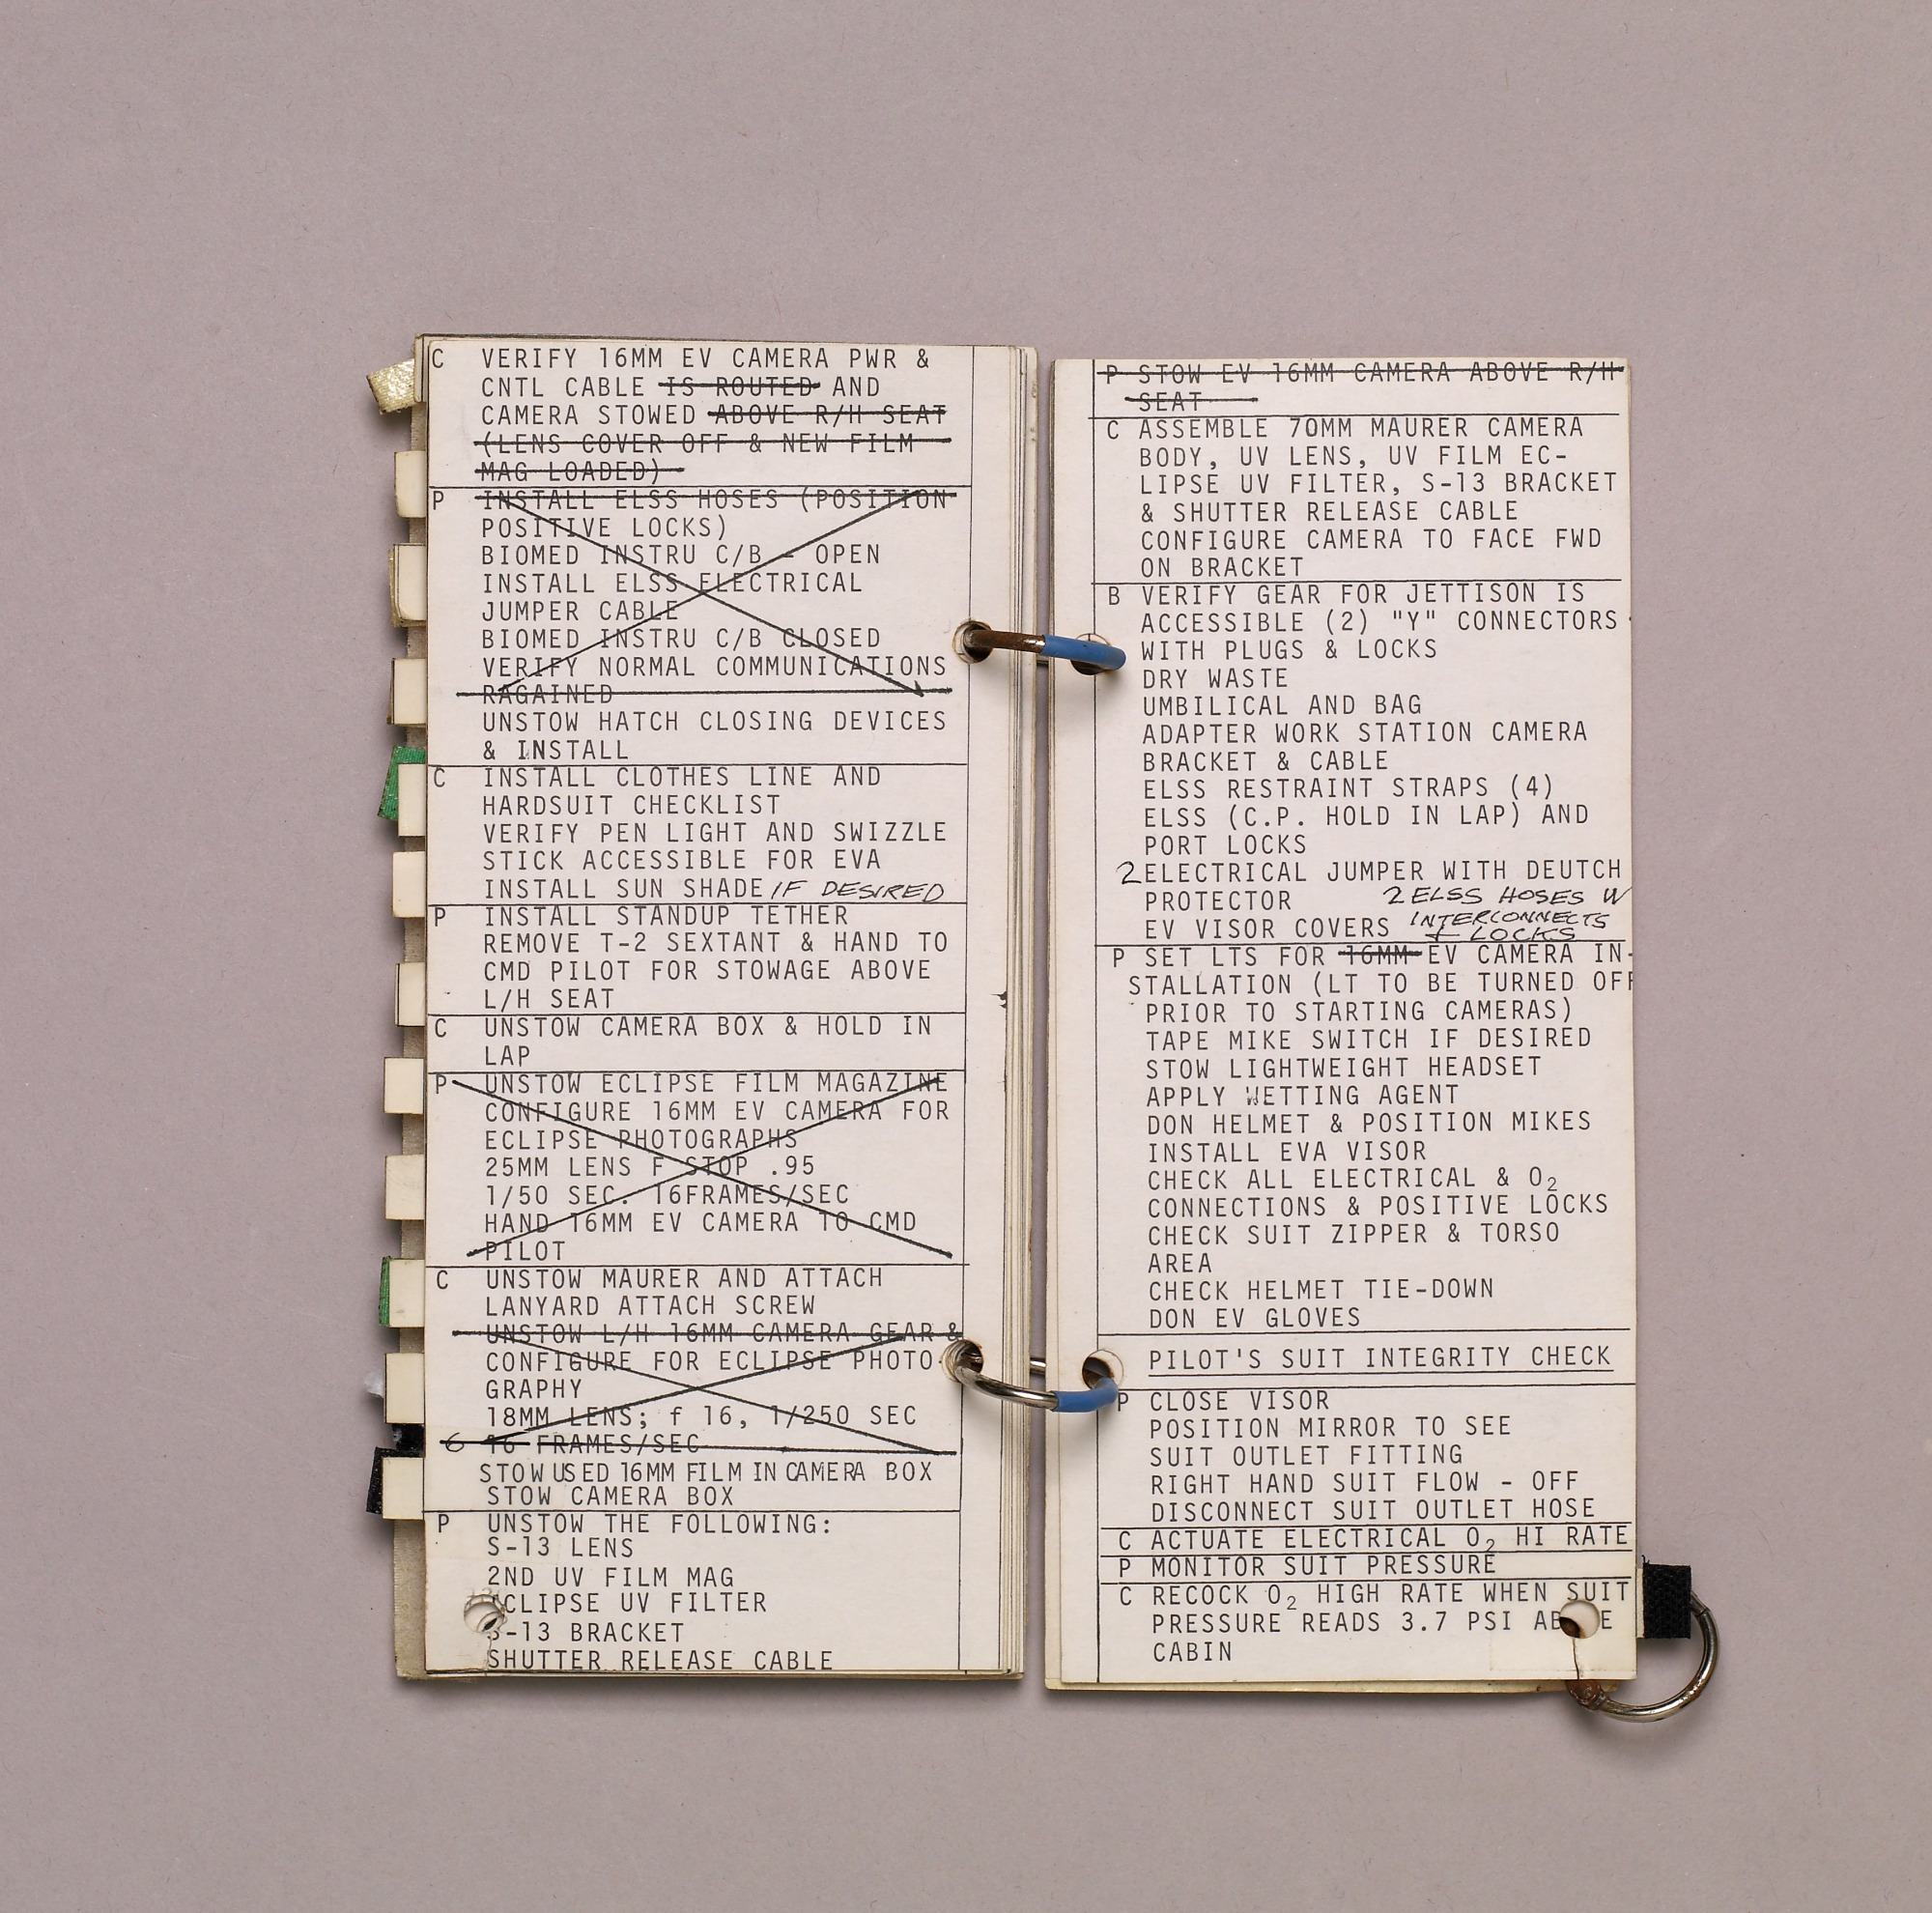 C VERIFY 16MM EV CAMERA PWR &
CNTL CABLE IS ROUTED AND
CAMERA STOWED ABOVE R/H SEAT
(LENS COVER OFF & NEW FILM
MAG LOADED)
P INSTALL ELSS HOSES (POSITION
POSITIVE LOCKS)
BIOMED INSTRU C/B - OPEN
INSTALL ELSS ELECTRICAL
JUMPER CABLE
BIOMED INSTRU C/B CLOSED
VERIFY NORMAL COMMUNICATIONS
RAGAINED
UNSTOW HATCH CLOSING DEVICES
& INSTALL
C INSTALL CLOTHES LINE AND
HARDSUIT CHECKLIST
VERIFY PEN LIGHT AND SWIZZLE
STICK ACCESSIBLE FOR EVA
INSTALL SUN SHADE IF DESIRED
P INSTALL STANDUP TETHER
REMOVE T-2 SEXTANT & HAND TO
CMD PILOT FOR STOWAGE ABOVE
L/H SEAT
C UNSTOW CAMERA BOX & HOLD IN
LAP
P UNSTOW ECLIPSE FILM MAGAZINE
CONFIGURE 16MM EV CAMERA FOR
ECLIPSE PHOTOGRAPHS
25MM LENS F STOP .95
1/50 SEC. 16FRAMES/SEC
HAND 16MM EV CAMERA TO CMD
PILOT
C UNSTOW MAURER AND ATTACH
LANYARD ATTACH SCREW
UNSTOW L/H 16MM CAMERA GEAR &
CONFIGURE FOR ECLIPSE PHOTO-
GRAPHY
18MM LENS; f 16, 1/250 SEC
6 16 FRAMES/SEC
STOW USED 16MM FILM IN CAMERA BOX
STOW CAMERA BOX
P UNSTOW THE FOLLOWING:
S-13 LENS
2ND UV FILM MAG
ECLIPSE UV FILTER
S-13 BRACKET
SHUTTER RELEASE CABLE
P STOW EV 16MM CAMERA ABOVE R/H
SEAT
C ASSEMBLE 70MM MAURER CAMERA
BODY, UV LENS, UV FILM EC-
LIPSE UV FILTER, S-13 BRACKET
& SHUTTER RELEASE CABLE
CONFIGURE CAMERA TO FACE FWD
ON BRACKET
B VERIFY GEAR FOR JETTISON IS
ACCESSIBLE (2) "Y" CONNECTORS
WITH PLUGS & LOCKS
DRY WASTE
UMBILICAL AND BAG
ADAPTER WORK STATION CAMERA
BRACKET & CABLE
ELSS RESTRAINT STRAPS (4)
ELSS (C.P. HOLD IN LAP) AND
PORT LOCKS
2 ELECTRICAL JUMPER WITH DEUTCH
PROTECTOR 2 ELSS HOSES W
EV VISOR COVERS INTERCONNECTS
+ LOCKS
P SET LTS FOR 16MM EV CAMERA IN-
STALLATION (LT TO BE TURNED OFF
PRIOR TO STARTING CAMERAS)
TAPE MIKE SWITCH IF DESIRED
STOW LIGHTWEIGHT HEADSET
APPLY WETTING AGENT
DON HELMET & POSITION MIKES
INSTALL EVA VISOR
CHECK ALL ELECTRICAL & O2
CONNECTIONS & POSITIVE LOCKS
CHECK SUIT ZIPPER & TORSO
AREA
CHECK HELMET TIE-DOWN
DON EV GLOVES
PILOT'S SUIT INTEGRITY CHECK
P CLOSE VISOR
POSITION MIRROR TO SEE
SUIT OUTLET FITTING
RIGHT HAND SUIT FLOW - OFF
DISCONNECT SUIT OUTLET HOSE
C ACTUATE ELECTRICAL O2 HI RATE
P MONITOR SUIT PRESSURE
C RECOCK O2 HIGH RATE WHEN SUIT
PRESSURE READS 3.7 PSI ABOVE
CABIN